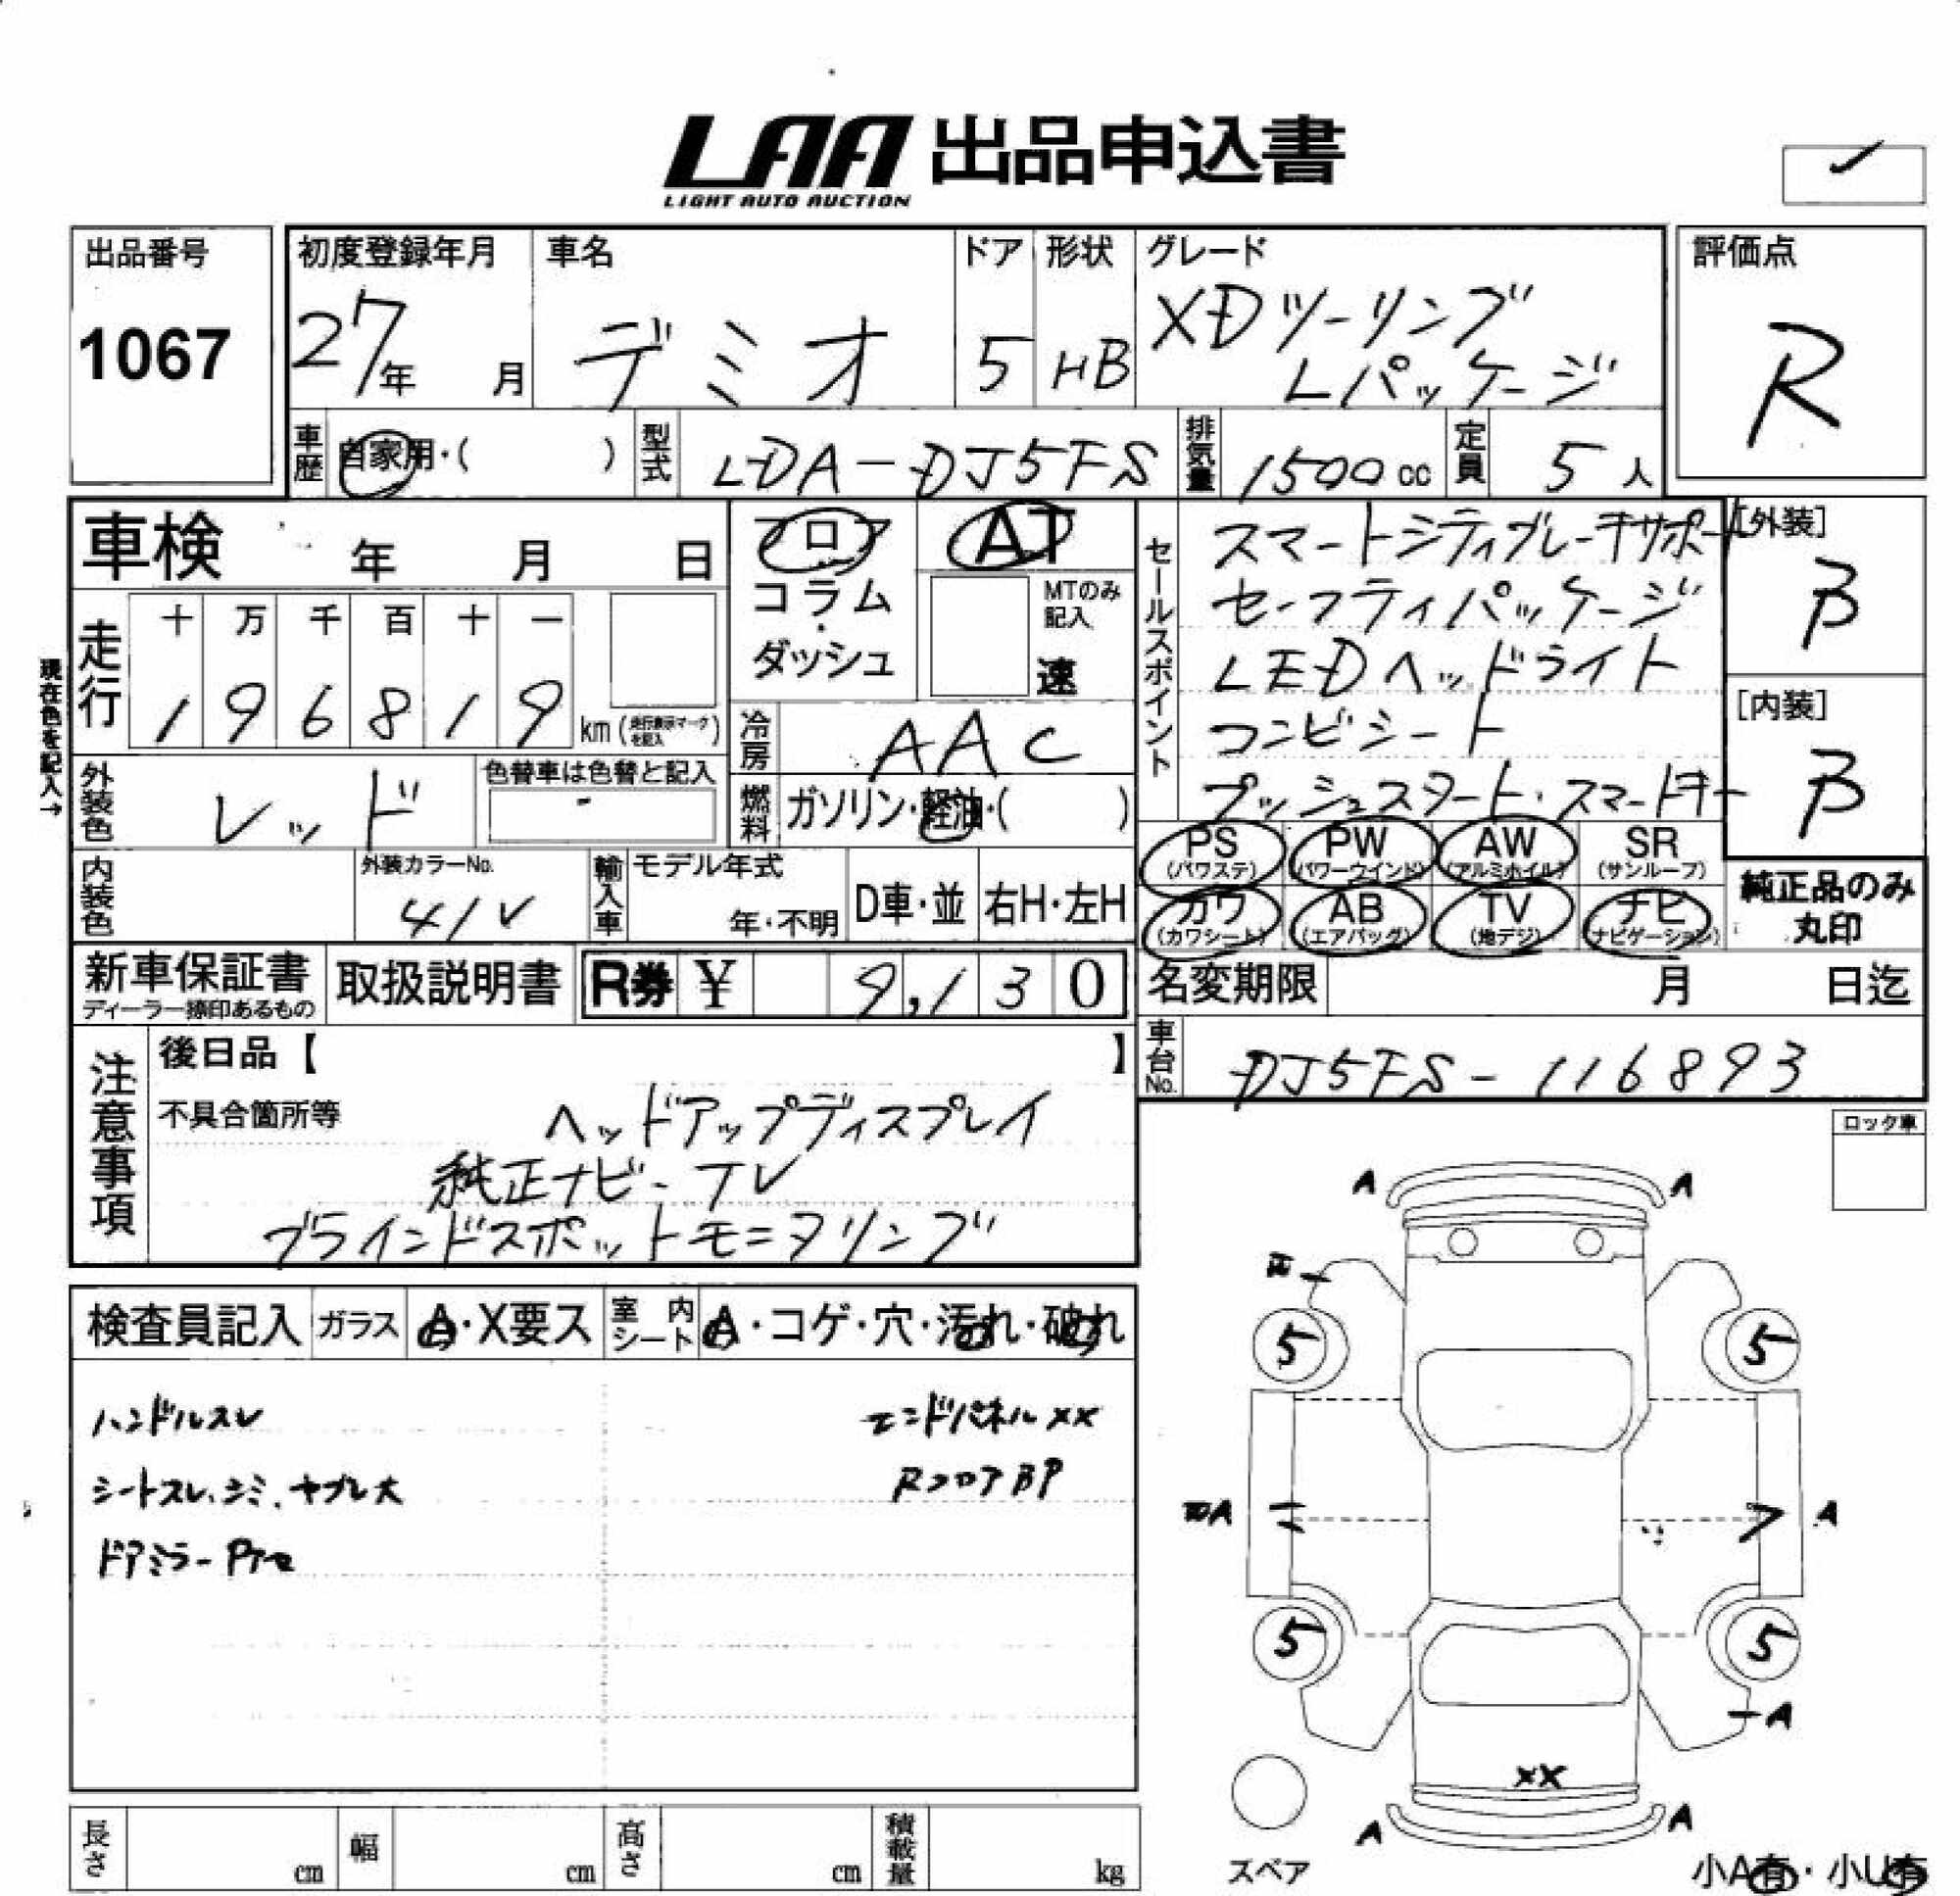 LAA 出品申込書
LIGHT AUTO AUCTION
出品番号
1067
初度登録年月
27年 月
車名
デミオ
ドア
5
形状
HB
グレード
XDツーリング
Lパッケージ
評価点
R
車歴
自家用・( )
型式
LDA-DJ5FS
排気量
1500 cc
定員
5 人
車検 年 月 日
フロア
コラム
ダッシュ
AT
MTのみ
記入
速
セールスポイント
スマートシティブレーキサポート
セーフティパッケージ
LEDヘッドライト
コンビシート
プッシュスタート・スマートキー
[外装]
B
[内装]
B
現在色を記入→
走行
十 万 千 百 十 一
1 9 6 8 1 9
km (走行表示マークを記入)
冷房
AAC
外装色
レッド
色替車は色替と記入
燃料
ガソリン・軽油・( )
PS
(パワステ)
PW
(パワーウインド)
AW
(アルミホイル)
SR
(サンルーフ)
カワ
(カワシート)
AB
(エアバッグ)
TV
(地デジ)
ナビ
(ナビゲーション)
純正品のみ
丸印
内装色
外装カラーNo.
41V
輸入車
モデル年式
年・不明
D車・並
右H・左H
新車保証書
ディーラー捺印あるもの
取扱説明書
R券 ¥ 9,130
名変期限 月 日迄
車台No.
DJ5FS-116893
注意事項
後日品【 】
不具合箇所等
ヘッドアップディスプレイ
純正ナビ-TV
ブラインドスポットモニタリング
ロック車
検査員記入
ガラス
A・X要ス
室内シート
A・コゲ・穴・汚れ・破れ
ハンドルスレ
シートスレ、シミ、ヤブレ大
ドアミラー
エンドパネルXX
RフロアBP
A A
5 5
A
A
5 5
A
XX
A A
スペア
小A有・小U有
長さ cm
幅 cm
高さ cm
積載量 kg